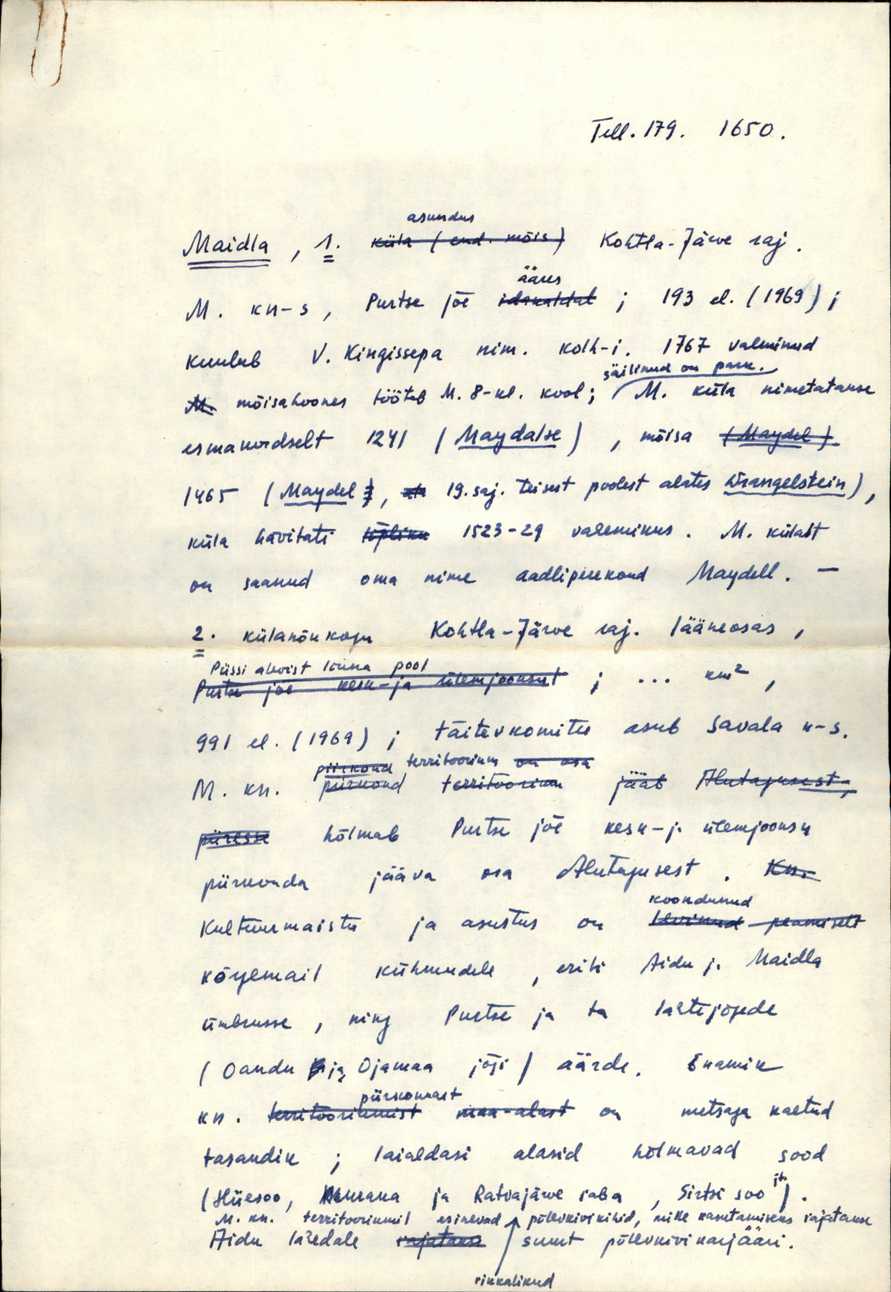 Tell. 179. 1650.
asundus
Maidla, 1. küla (end. mõis) Kohtla-Järve raj.
ääres
M. kn-s, Purtse jõe idakaldal; 193 el. (1969);
kuulub V. Kingissepa nim. kolh-i. 1767 valminud
säilinud on park.
M. mõisahoones töötab M. 8-kl. kool; M. küla nimetatakse
esmakordselt 1241 (Maydalse), mõisa (Maydel)
1465 (Maydel, 19. saj. teisest poolest alates Wrangelstein),
küla hävitati lõpliku 1523-29 vahemikus. M. külast
on saanud oma nime aadliperekond Maydell. —
2. külanõukogu Kohtla-Järve raj. lääneosas,
Püssi alevist lõuna pool
Purtse jõe kesk-ja ülemjooksul; ... km²,
991 el. (1969); täitevkomitee asub Savala k-s.
piirkond territoorium on osa
M. kn. piirkond territoorium jääb Alutagusest,
piiresse hõlmab Purtse jõe kesk-j. ülemjooksu
piirkonda jääva osa Alutagusest. Kn.
koondunud
Kultuurmaistu ja asustus on levinud peamiselt
kõrgemail kühmudele, eriti Aidu j. Maidla
ümbrusse, ning Purtse ja ta lisajõgede
(Oandu ja Ojamaa jõgi) äärde. Enamik
piirkonnast
kn. territooriumist maa-alast on metsaga kaetud
tasandik; laialdasi alasid hõlmavad sood
jt.
(Hiiesoo, ja Ratvajärve raba, Sirtsi soo).
M. kn. territooriumil esinevad põlevkivikihid, mille kasutamiseks rajatakse
Aidu lähedale rajatakse suurt põlevkivikarjääri.
rikkalikud